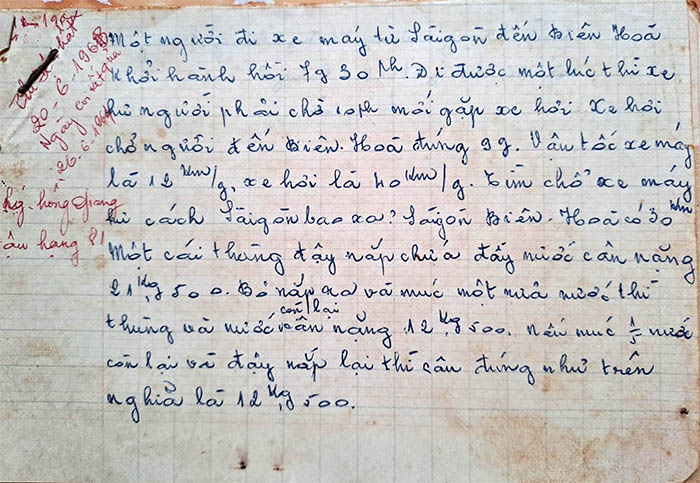 20-6-1968
26-6-196
hg. hồng Giang
ậu hạng 81
Một người đi xe máy từ Sàigòn đến Biên Hoà
Khởi hành hồi 7g 30ph. Đi được một lúc thì xe
hư người phải chờ 10ph mới gặp xe hơi. Xe hơi
chở người đến Biên-Hoà đúng 9g. Vận tốc xe máy
là 12km/g, xe hơi là 40km/g. Tìm chổ xe máy
hư cách Sàigòn bao xa? Sàigòn Biên-Hoà có 30km
Một cái thùng đậy nắp chứa đầy nước cân nặng
21kg,500. Bỏ nắp ra và múc một nửa nước thì
thùng và nước còn lại cân nặng 12kg,500. nếu múc 1/5 nước
còn lại và đậy nắp lại thì cân đúng như trên
nghiã là 12kg,500.